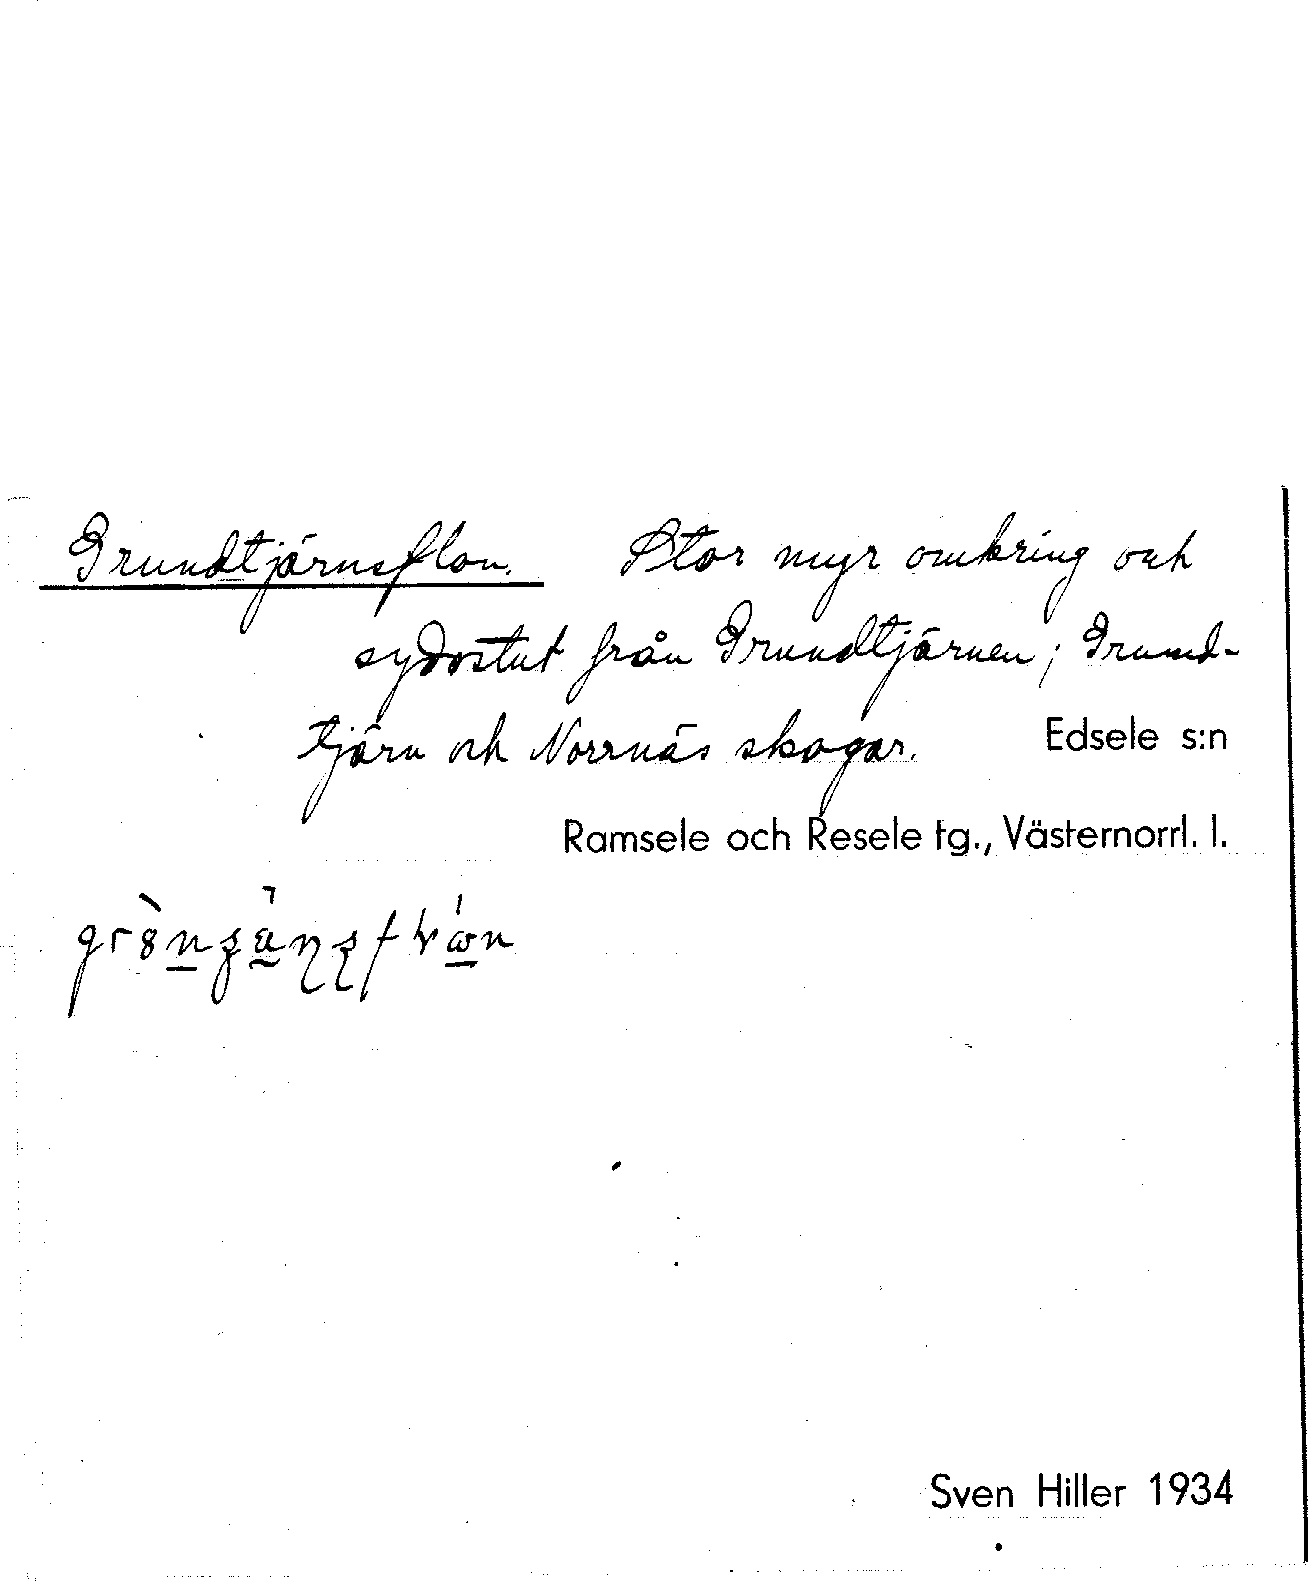 Grundtjärnsflon. Stor myr omkring och
sydostut från Grundtjärnen; Grund-
tjärn och Norrnäs skogar. Edsele s:n
Ramsele och Resele tg., Västernorrl. l.
Sven Hiller 1934